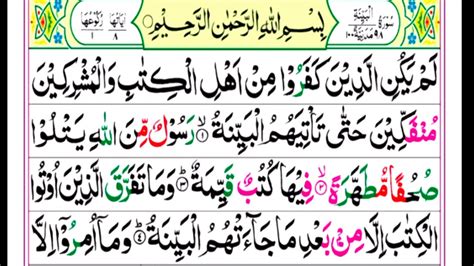 سُوْرَةُ الْبَيِّنَةِ ٩٨ مَدَنِيَّةٌ ١٠٠
بِسْمِ اللّٰهِ الرَّحْمٰنِ الرَّحِيْمِ
اٰيَاتُهَا ٨ رُكُوْعُهَا ١
لَمْ يَكُنِ الَّذِيْنَ كَفَرُوْا مِنْ اَهْلِ الْكِتٰبِ وَالْمُشْرِكِيْنَ
مُنْفَكِّيْنَ حَتّٰى تَاْتِيَهُمُ الْبَيِّنَةُ ۙ ١ رَسُوْلٌ مِّنَ اللّٰهِ يَتْلُوْا
صُحُفًا مُّطَهَّرَةً ۙ ٢ فِيْهَا كُتُبٌ قَيِّمَةٌ ؕ ٣ وَمَا تَفَرَّقَ الَّذِيْنَ اُوْتُوا
الْكِتٰبَ اِلَّا مِنْۢ بَعْدِ مَا جَآءَتْهُمُ الْبَيِّنَةُ ؕ ٤ وَمَاۤ اُمِرُوْۤا اِلَّا